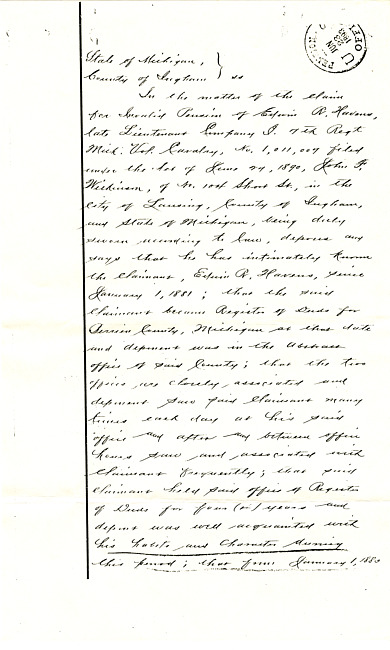 State of Michigan, }
County of Ingham } ss
In the matter of the claim
for Invalid Pension of Edwin R. Havens,
late Lieutenant Company I. 7th Regt
Mich. Vol. Cavalry, No. 1,011,007 filed
under the Act of June 27, 1890, John F.
Wilkinson, of No. Shoat St., in the
City of Lansing, County of Ingham,
and State of Michigan, being duly
sworn according to law, deposes and
says that he has intimately known
the claimant, Edwin R. Havens, since
January 1, 1881; that the said
Claimant became Register of Deeds for
Berrien County, Michigan at that date
and deponent was in the Abstract
office of said County; that the two
offices are closely associated and
deponent saw said Claimant many
times each day at his said
office and after and between office
hours saw and associated with
Claimant frequently; that said
Claimant held said office of Register
of Deeds for four (4) years and
deponent was well acquainted with
his habits and character during
this period; that from January 1, 188